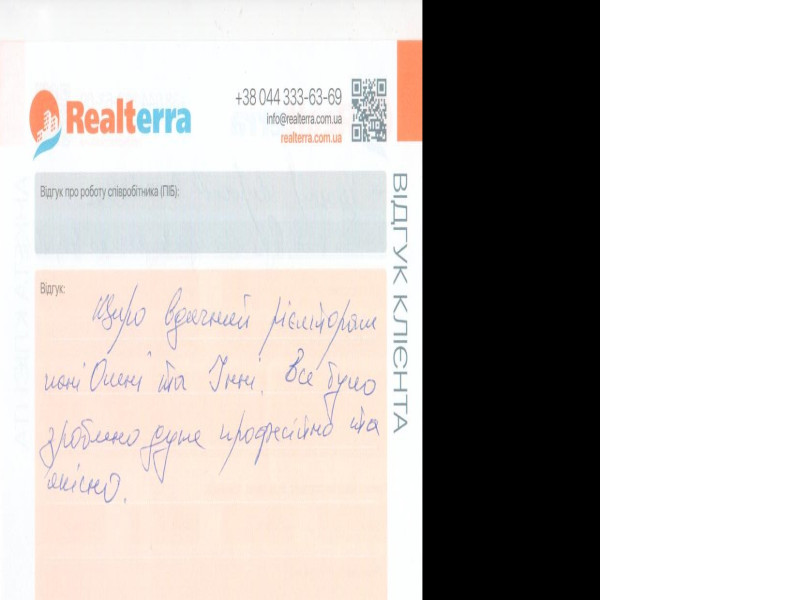 Realterra
+38 044 333-63-69
info@realterra.com.ua
realterra.com.ua
ВІДГУК КЛІЄНТА
Відгук про роботу співробітника (ПІБ):
Відгук:
Щиро вдячний рієлторам
пані Олені та Інні. Все було
зроблено дуже професійно та
якісно.